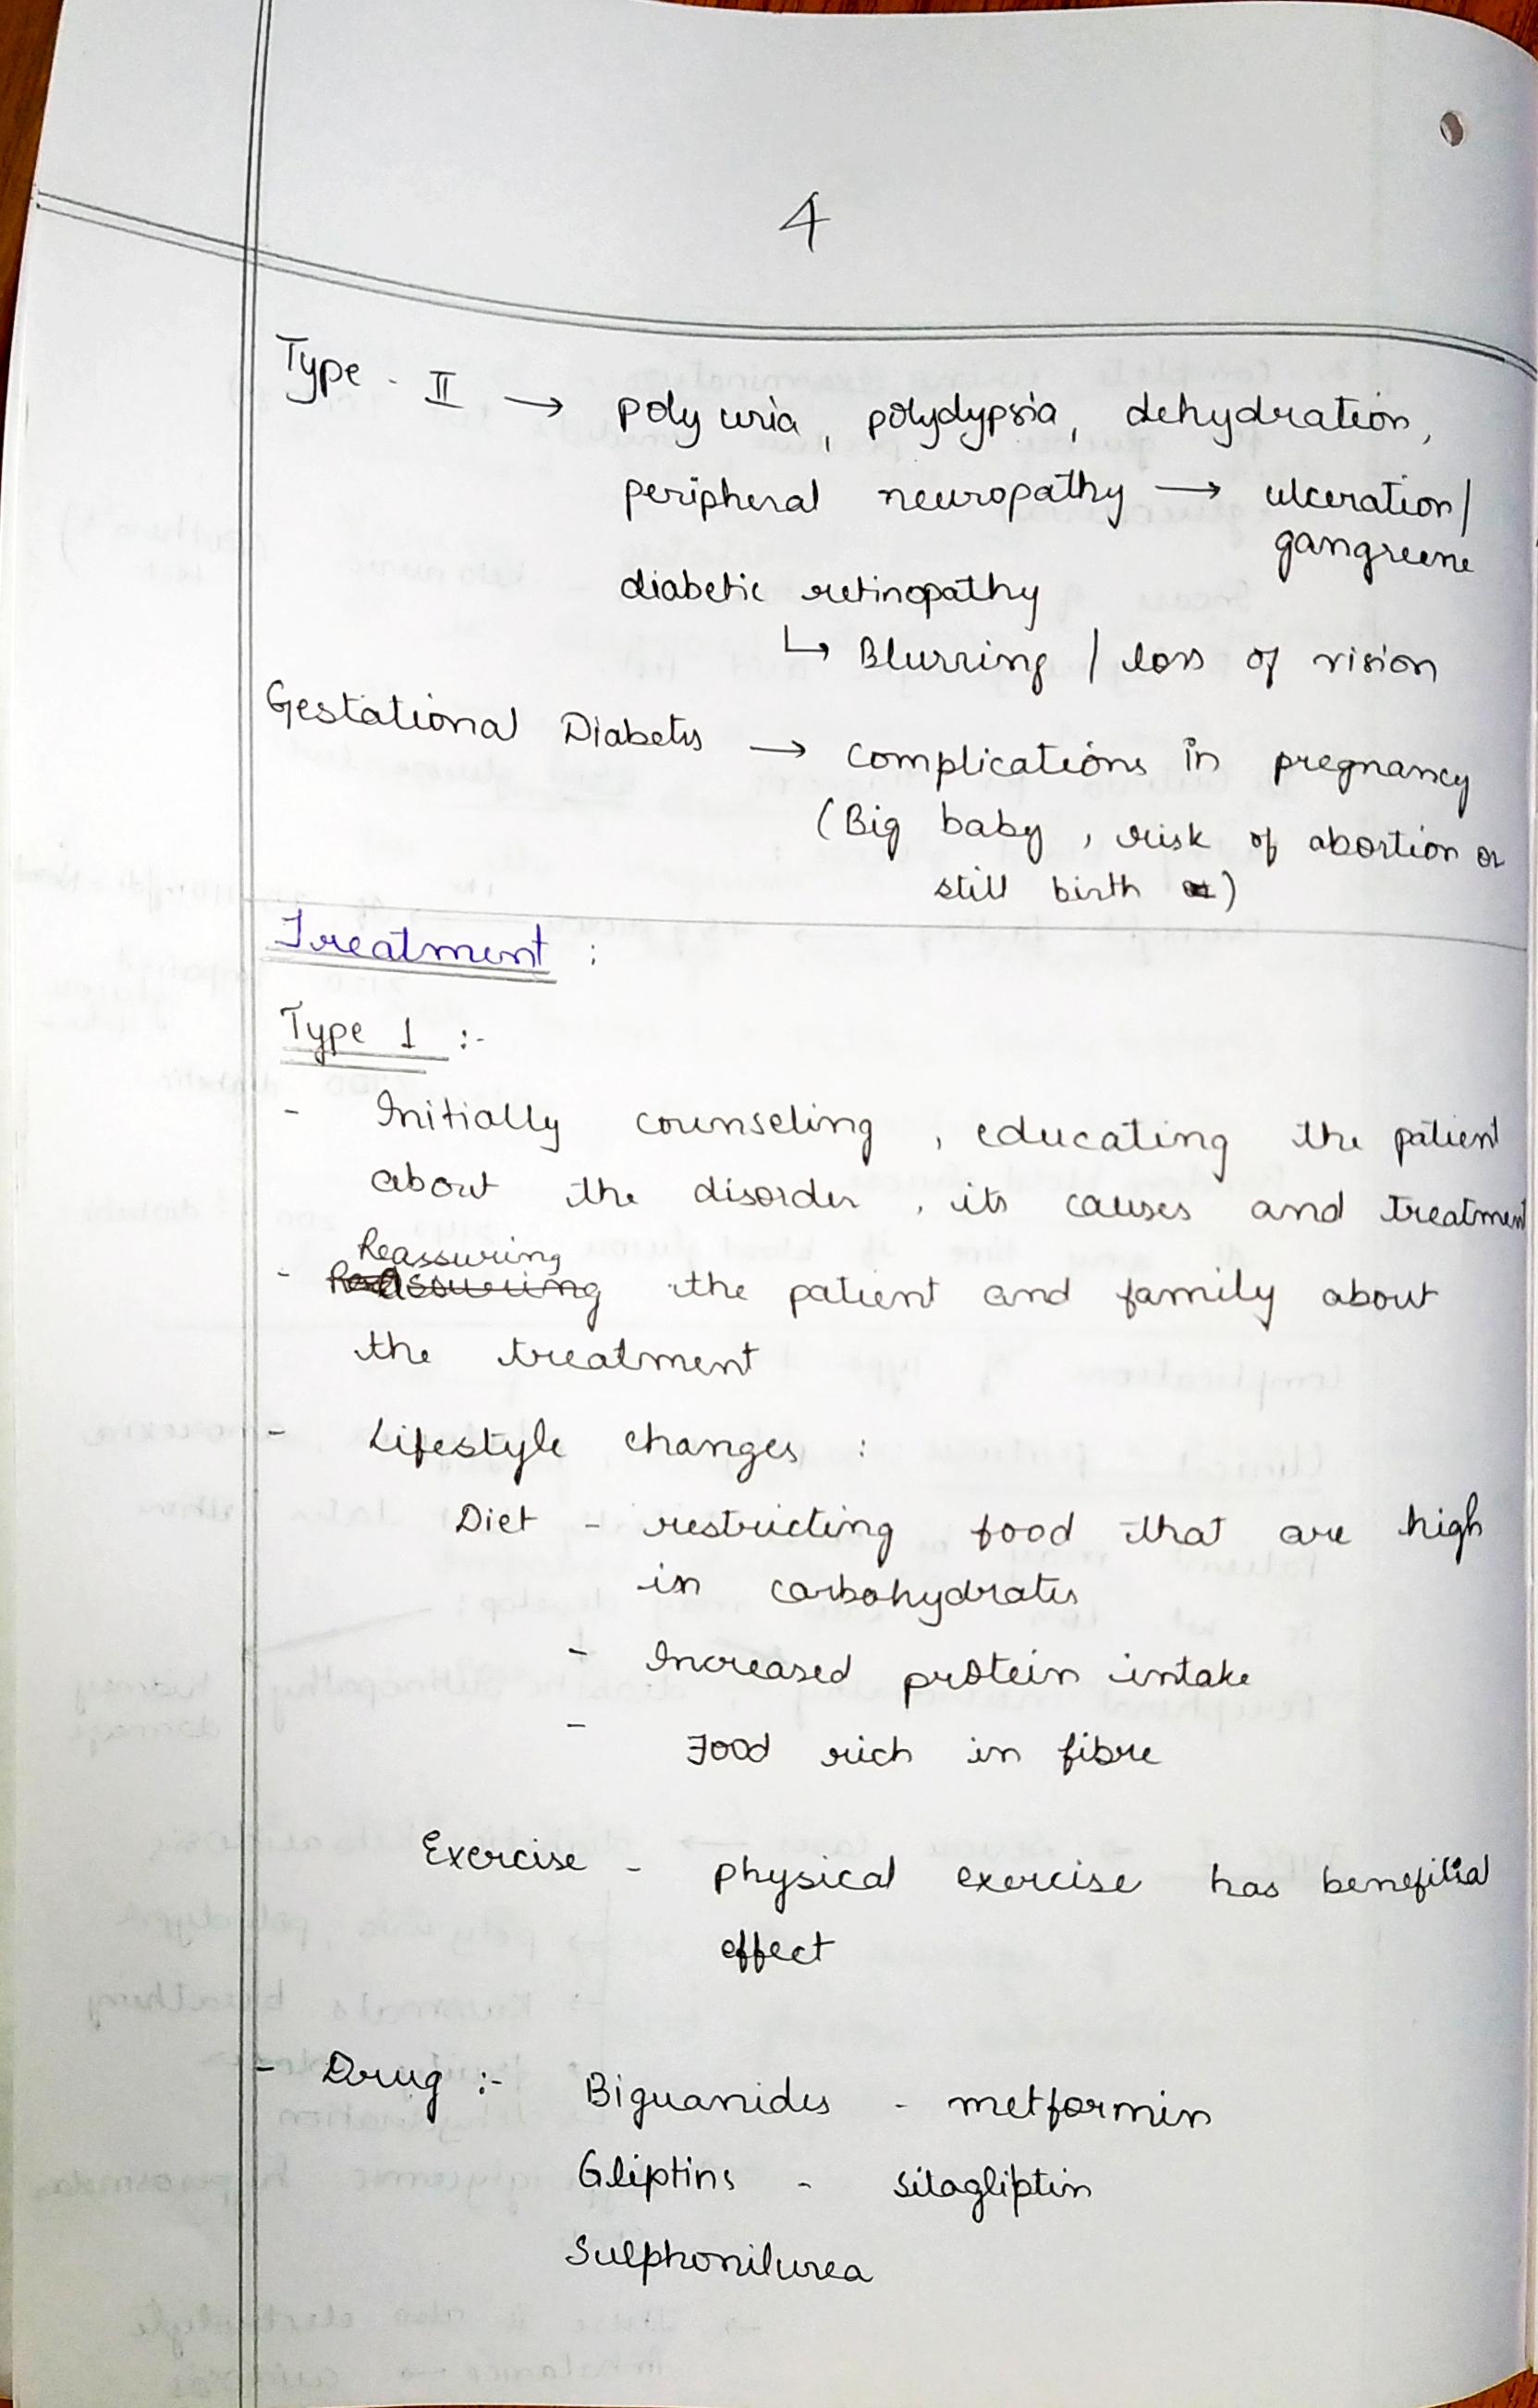 4
Type - II → poly uria, polydypsia, dehydration,
peripheral neuropathy → ulceration/
gangreene
diabetic retinopathy
↳ Blurring / loss of vision
Gestational Diabetes → complications in pregnancy
(Big baby, risk of abortion or
still birth)
Treatment :
Type 1 :-
- Initially counseling, educating the patient
about the disorder, its causes and treatment
Reassuring
- the patient and family about
the treatment
- Lifestyle changes :
Diet - restricting food that are high
in carbohydrates
- Increased protein intake
- Food rich in fibre
Exercise - physical exercise has benefitial
effect
- Drug :- Biguanides - metformin
Gliptins - sitagliptin
Sulphonilurea